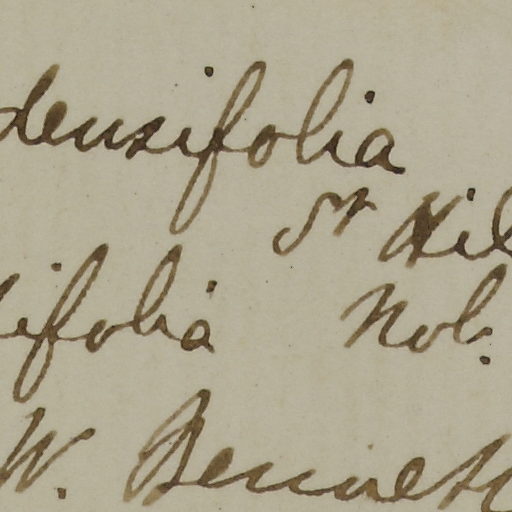 densifolia
St Hil
ifolia Nob.
W. Bennett